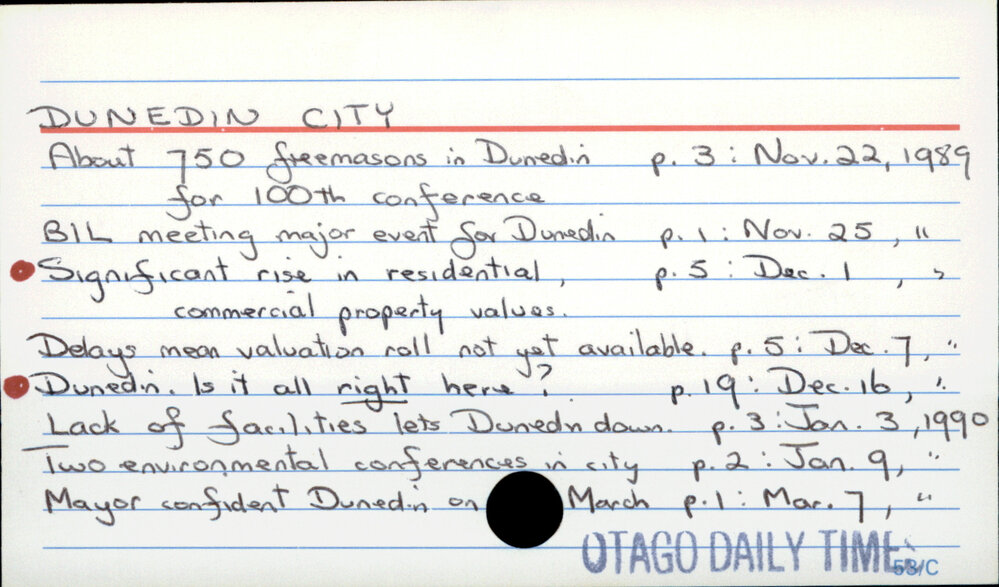 DUNEDIN CITY
About 750 freemasons in Dunedin p. 3 : Nov. 22, 1989
for 100th conference
BIL meeting major event for Dunedin p. 1 : Nov. 25, "
Significant rise in residential, p. 5 : Dec. 1, "
commercial property values.
Delays mean valuation roll not yet available. p. 5 : Dec. 7, "
Dunedin. Is it all right here? p. 19 : Dec. 16, "
Lack of facilities lets Dunedin down. p. 3 : Jan. 3, 1990
Two environmental conferences in city p. 2 : Jan. 9, "
Mayor confident Dunedin on March p. 1 : Mar. 7, "
OTAGO DAILY TIMES
53/C